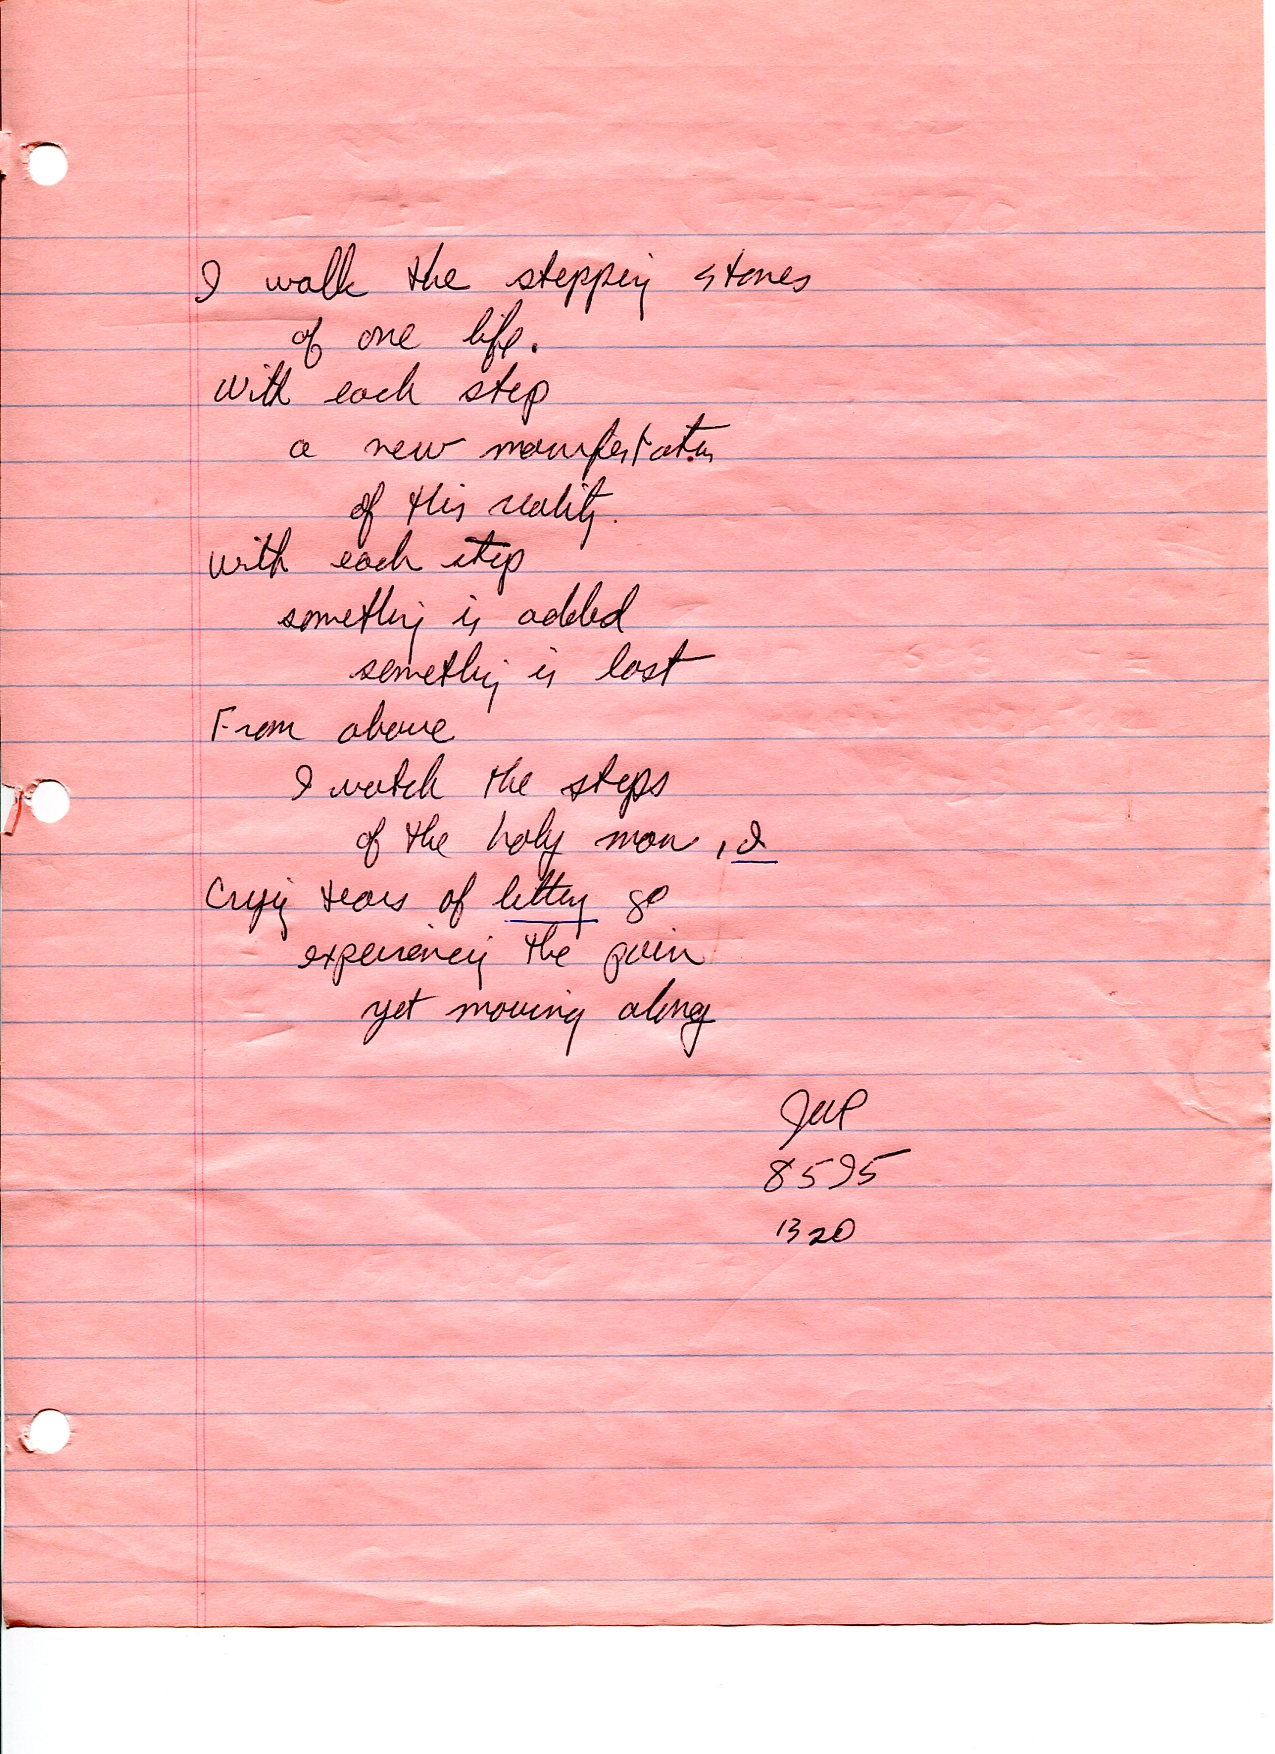 I walk the stepping stones
of one life.
With each step
a new manifestation
of this reality.
With each step
something is added
something is lost
From above
I watch the steps
of the holy man, I
Crying tears of letting go
experiencing the pain
yet moving along
8595
1320